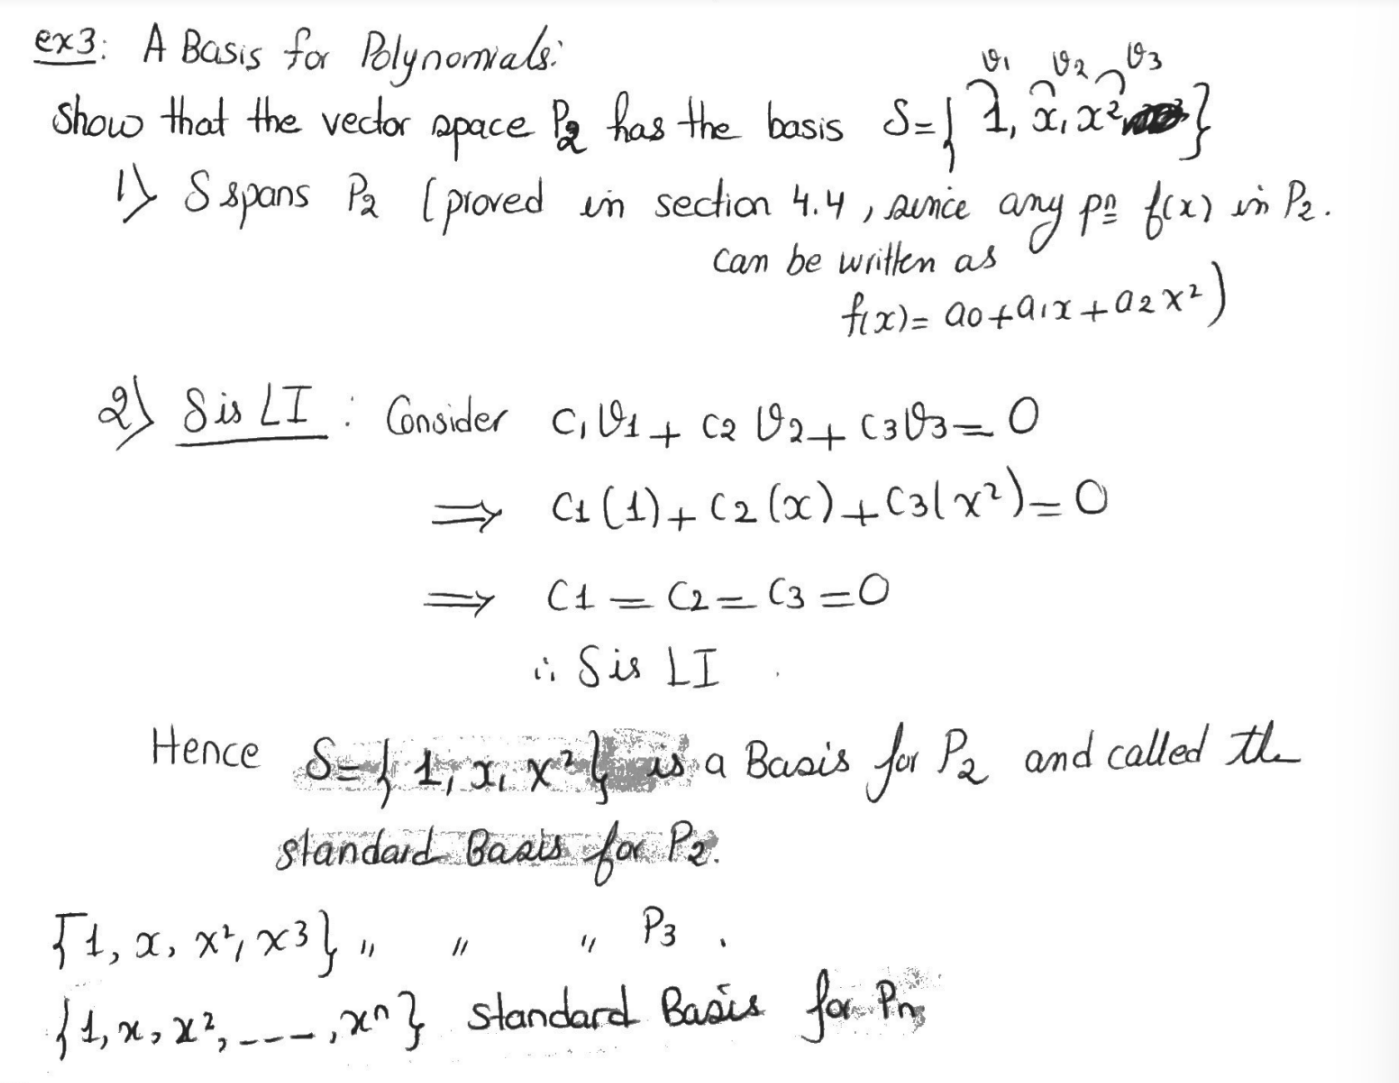 ex3: A Basis for Polynomials:
v1 v2 v3
Show that the vector space P2 has the basis S={1, x, x²}
1) S spans P2 (proved in section 4.4, since any pn f(x) in P2.
can be written as
f(x)= a0+a1x+a2x²)
2) S is LI : Consider c1v1+c2v2+c3v3=0
⟹ c1(1)+c2(x)+c3(x²)=0
⟹ c1=c2=c3=0
∴ S is LI.
Hence S={1, x, x²} is a Basis for P2 and called the
standard Basis for P2.
{1, x, x², x3} " " " P3.
{1, x, x², ---, xn} standard Basis for Pn